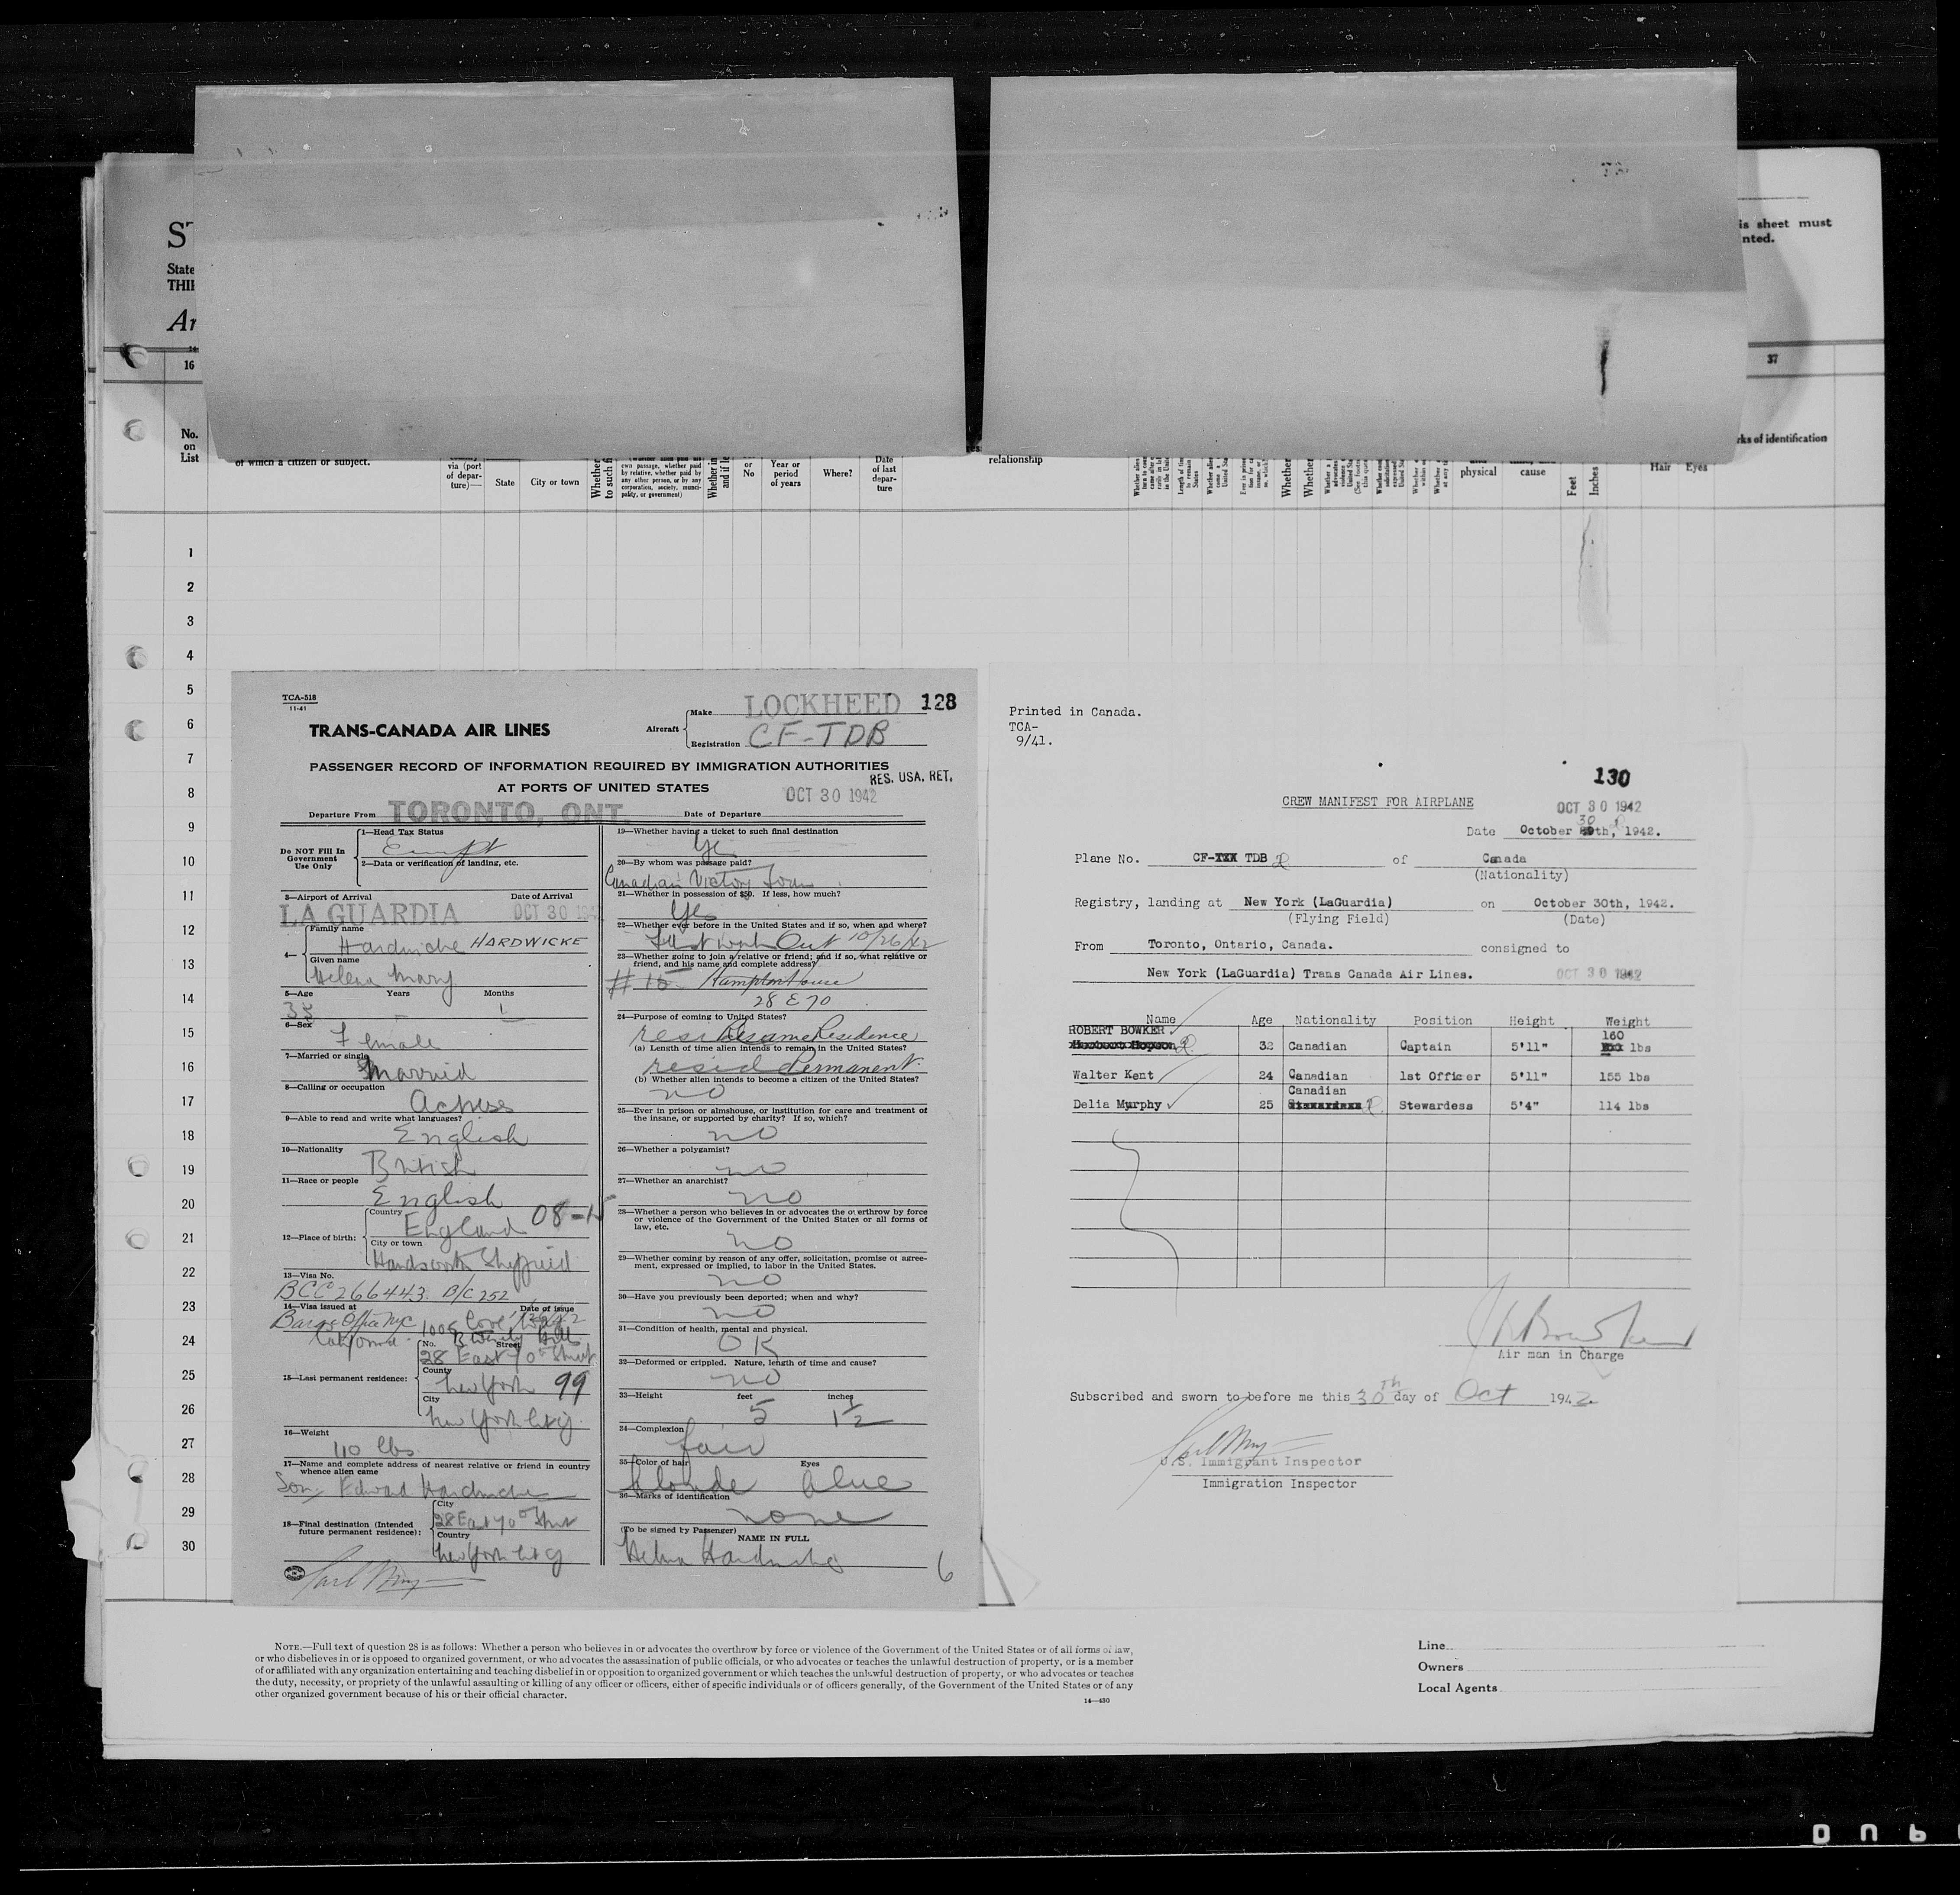 is sheet must
nted.
ST
State
THI
Ar
16
37
No.
on
List
of which a citizen or subject.
via (port
of depar-
ture)—
State
City or town
Whether
to such
own passage, whether paid
by relative, whether paid by
any other person, or by any
corporation, society, munici-
pality, or government)
Whether in
and if
or
No
Year or
period
of years
Where?
Date
of last
depar-
ture
relationship
physical
cause
Feet
Inches
Hair
Eyes
rks of identification
1
2
3
4
5
6
7
8
9
10
11
12
13
14
15
16
17
18
19
20
21
22
23
24
25
26
27
28
29
30
TCA-518
11-41
TRANS-CANADA AIR LINES
Aircraft
Make LOCKHEED 128
Registration CF-TDB
PASSENGER RECORD OF INFORMATION REQUIRED BY IMMIGRATION AUTHORITIES
AT PORTS OF UNITED STATES
RES. USA. RET.
OCT 30 1942
Departure From TORONTO, ONT. Date of Departure
Do NOT Fill In
Government
Use Only
1—Head Tax Status
2—Data or verification of landing, etc.
3—Airport of Arrival Date of Arrival
LA GUARDIA OCT 30 194
4—
Family name
Hardwicke HARDWICKE
Given name
Helena Mary
5—Age Years Months
6—Sex
Female
7—Married or single
Married
8—Calling or occupation
Actress
9—Able to read and write what languages?
English
10—Nationality
British
11—Race or people
English
12—Place of birth:
Country
England 08-
City or town
Handsworth Sheffield
13—Visa No.
BCC 266443 B/C 252
14—Visa issued at Date of issue
California
15—Last permanent residence:
No. Street
28 East 70th Street
County
New York 99
City
New York City
16—Weight
110 lbs
17—Name and complete address of nearest relative or friend in country
whence alien came
Son, Edward Hardwicke
18—Final destination (Intended
future permanent residence):
City
28 East 70th Street
Country
New York City
19—Whether having a ticket to such final destination
Yes
20—By whom was passage paid?
Canadian Victory Loan
21—Whether in possession of $50. If less, how much?
Yes
22—Whether ever before in the United States and if so, when and where?
Out 10/26/42
23—Whether going to join a relative or friend; and if so, what relative or
friend, and his name and complete address?
Hampton House
28 E 70
24—Purpose of coming to United States?
Resume Residence
(a) Length of time alien intends to remain in the United States?
Permanent
(b) Whether alien intends to become a citizen of the United States?
no
25—Ever in prison or almshouse, or institution for care and treatment of
the insane, or supported by charity? If so, which?
no
26—Whether a polygamist?
no
27—Whether an anarchist?
no
28—Whether a person who believes in or advocates the overthrow by force
or violence of the Government of the United States or all forms of
law, etc.
no
29—Whether coming by reason of any offer, solicitation, promise or agree-
ment, expressed or implied, to labor in the United States.
no
30—Have you previously been deported; when and why?
no
31—Condition of health, mental and physical.
OK
32—Deformed or crippled. Nature, length of time and cause?
no
33—Height feet inches
5 1½
34—Complexion
fair
35—Color of hair Eyes
blonde blue
36—Marks of identification
none
(To be signed by Passenger)
NAME IN FULL
Helena Hardwicke
6
Printed in Canada.
TCA-
9/41.
130
CREW MANIFEST FOR AIRPLANE
OCT 30 1942
30
Date October th, 1942.
Plane No. CF- TDB of Canada
(Nationality)
Registry, landing at New York (LaGuardia) on October 30th, 1942.
(Flying Field) (Date)
From Toronto, Ontario, Canada. consigned to
New York (LaGuardia) Trans Canada Air Lines. OCT 30 1942
Name Age Nationality Position Height Weight
ROBERT BOWKER 160
32 Canadian Captain 5'11" lbs
Walter Kent 24 Canadian 1st Officer 5'11" 155 lbs
Canadian
Delia Murphy 25 Stewardess 5'4" 114 lbs
Air man in Charge
Subscribed and sworn to before me this 30th day of Oct 1942
U.S. Immigrant Inspector
Immigration Inspector
NOTE.—Full text of question 28 is as follows: Whether a person who believes in or advocates the overthrow by force or violence of the Government of the United States or of all forms of law,
or who disbelieves in or is opposed to organized government, or who advocates the assassination of public officials, or who advocates or teaches the unlawful destruction of property, or is a member
of or affiliated with any organization entertaining and teaching disbelief in or opposition to organized government or which teaches the unlawful destruction of property, or who advocates or teaches
the duty, necessity, or propriety of the unlawful assaulting or killing of any officer or officers, either of specific individuals or of officers generally, of the Government of the United States or of any
other organized government because of his or their official character.
14—430
Line
Owners
Local Agents